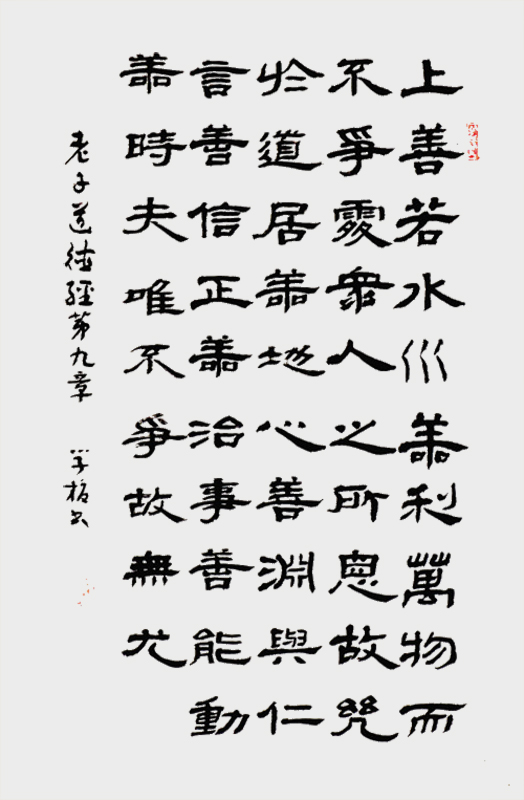 上善若水水善利萬物而
不爭處衆人之所惡故幾
於道居善地心善淵與仁
言善信正善治事善能動
善時夫唯不爭故無尤
老子道德經第九章